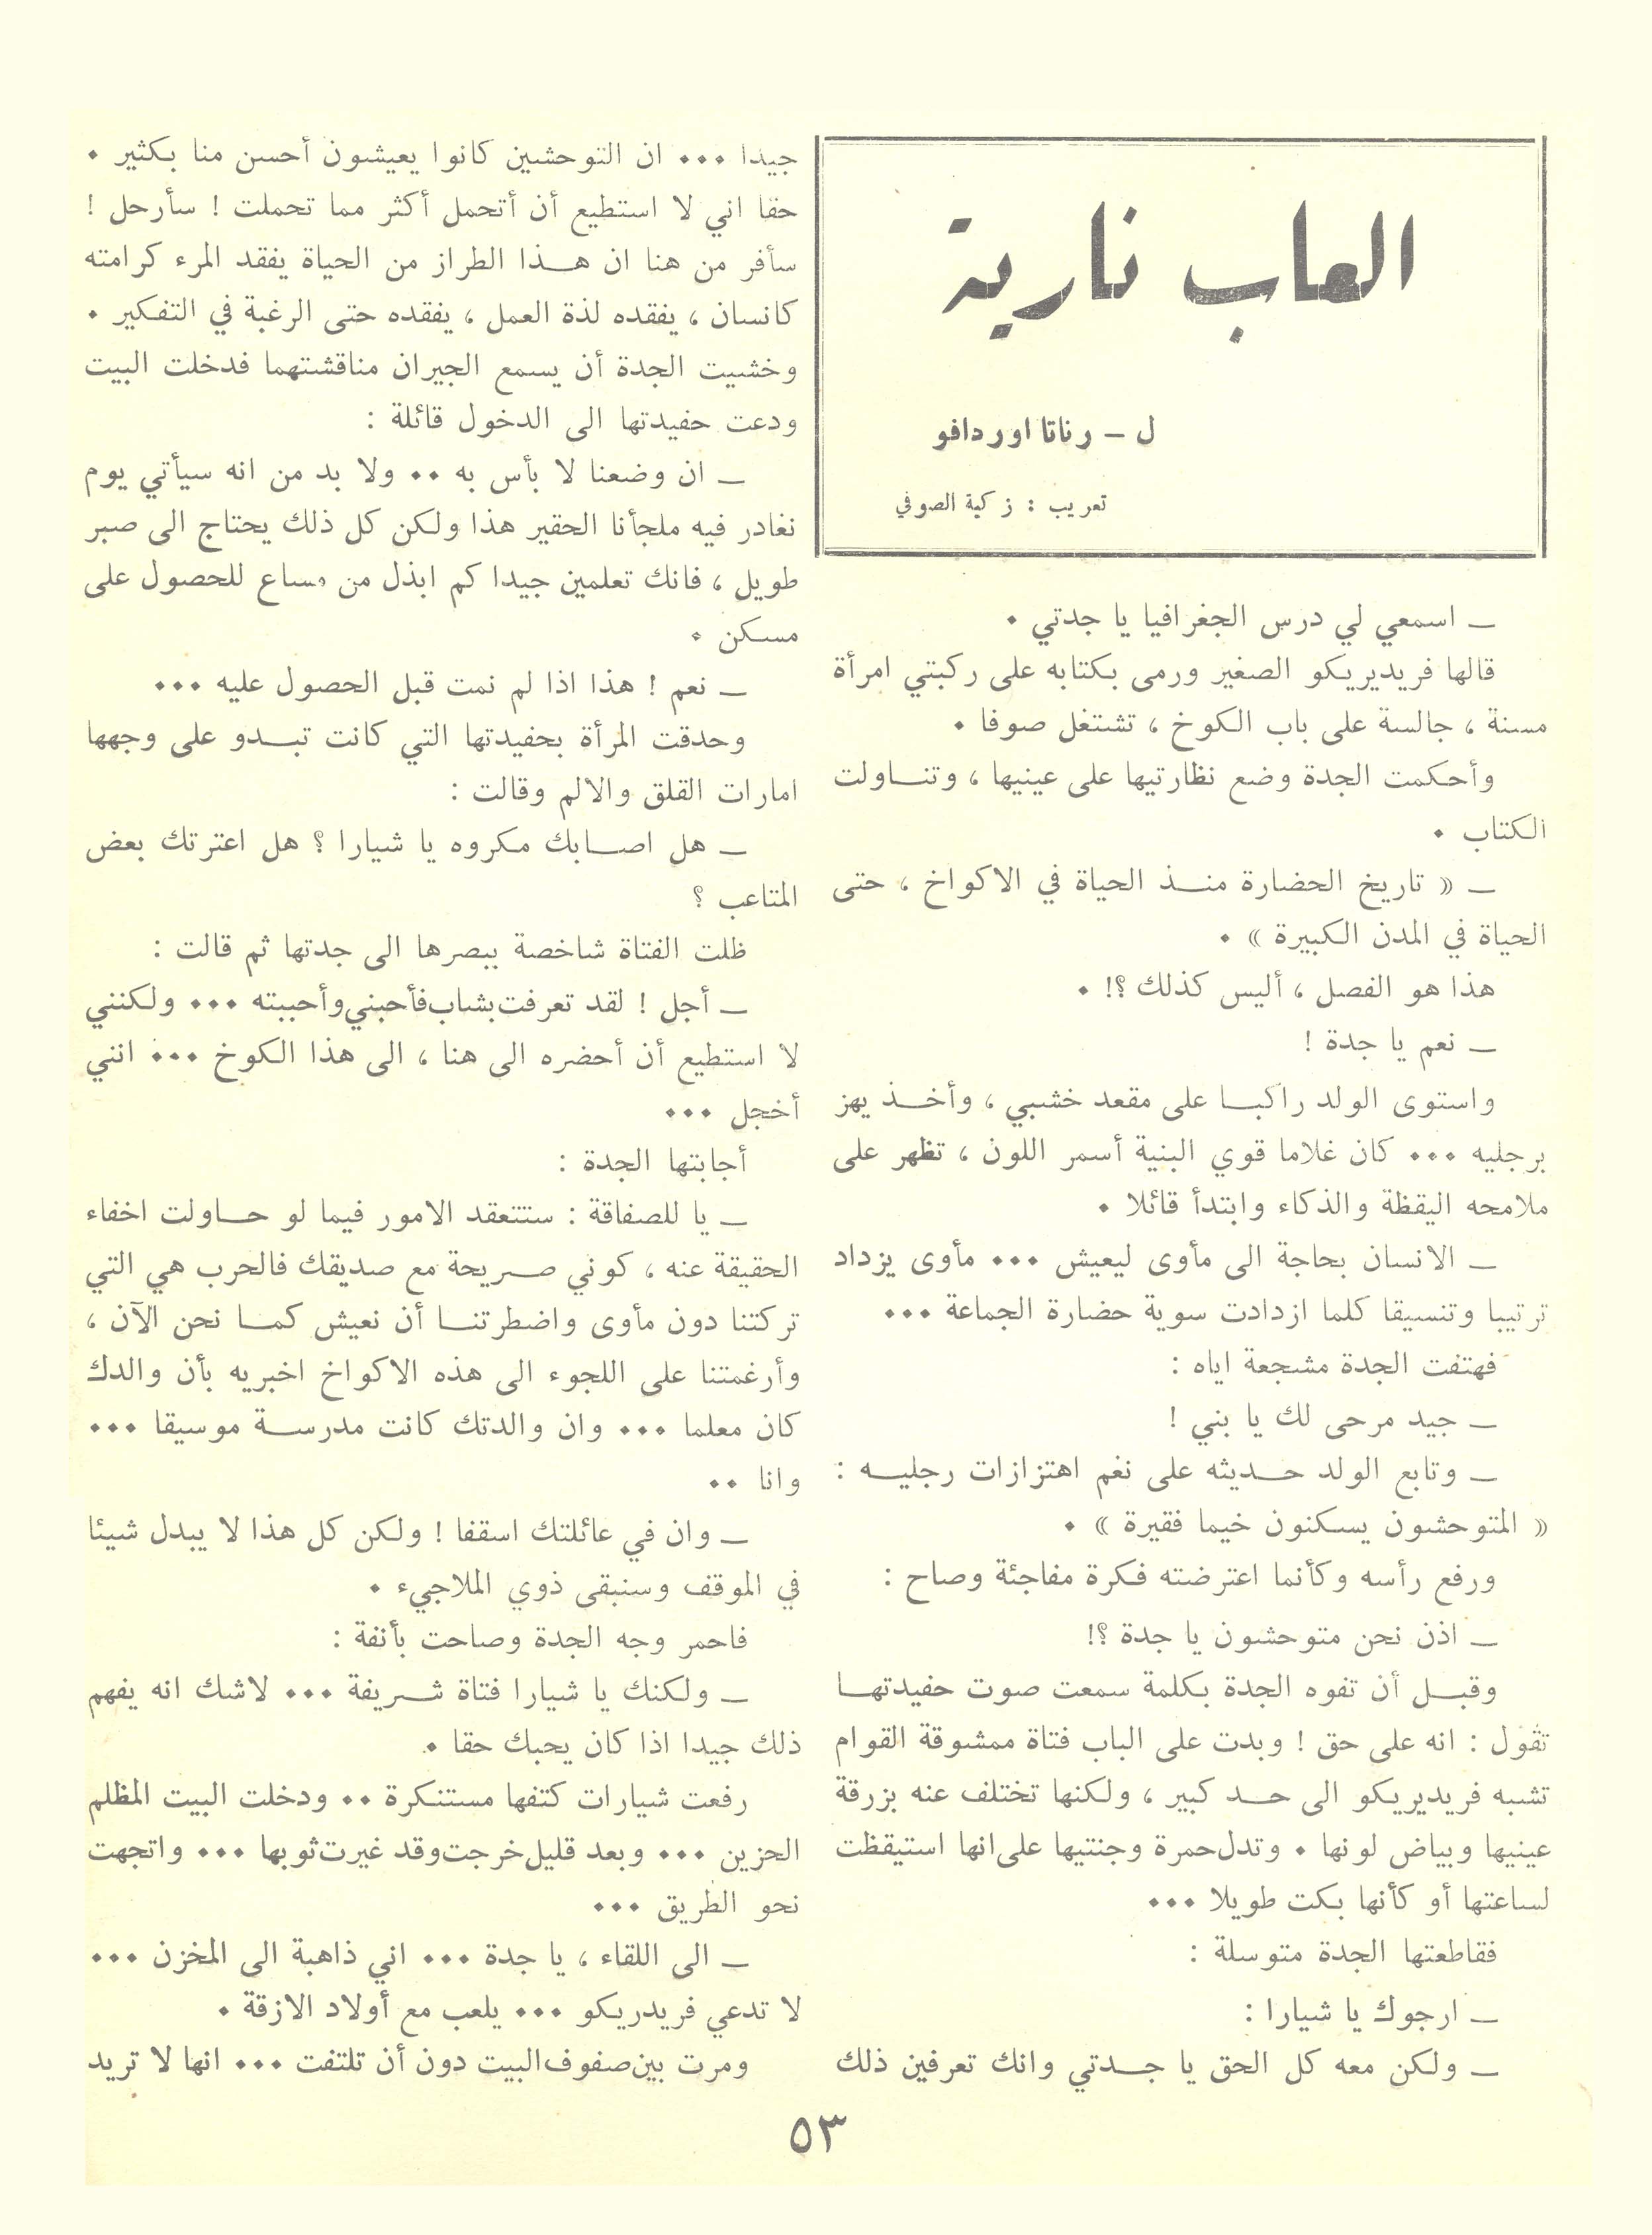 العاب نارية
ل – رناتا اوردافو
تعريب : زكية الصوفي
– اسمعي لي درس الجغرافيا يا جدتي ٠
قالها فريديريكو الصغير ورمى بكتابه على ركبتي امرأة
مسنة ، جالسة على باب الكوخ ، تشتغل صوفا ٠
وأحكمت الجدة وضع نظارتيها على عينيها ، وتناولت
الكتاب ٠
– « تاريخ الحضارة منذ الحياة في الاكواخ ، حتى
الحياة في المدن الكبيرة » ٠
هذا هو الفصل ، أليس كذلك ؟! ٠
– نعم يا جدة !
واستوى الولد راكبا على مقعد خشبي ، وأخذ يهز
برجليه ٠٠٠ كان غلاما قوي البنية أسمر اللون ، تظهر على
ملامحه اليقظة والذكاء وابتدأ قائلا ٠
– الانسان بحاجة الى مأوى ليعيش ٠٠٠ مأوى يزداد
ترتيبا وتنسيقا كلما ازدادت سوية حضارة الجماعة ٠٠٠
فهتفت الجدة مشجعة اياه :
– جيد مرحى لك يا بني !
– وتابع الولد حديثه على نغم اهتزازات رجليه :
« المتوحشون يسكنون خيما فقيرة » ٠
ورفع رأسه وكأنما اعترضته فكرة مفاجئة وصاح :
– اذن نحن متوحشون يا جدة ؟!
وقبل أن تفوه الجدة بكلمة سمعت صوت حفيدتها
تقول : انه على حق ! وبدت على الباب فتاة ممشوقة القوام
تشبه فريديريكو الى حد كبير ، ولكنها تختلف عنه بزرقة
عينيها وبياض لونها ٠ وتدل حمرة وجنتيها على انها استيقظت
لساعتها أو كأنها بكت طويلا ٠٠٠
فقاطعتها الجدة متوسلة :
– ارجوك يا شيارا :
– ولكن معه كل الحق يا جدتي وانك تعرفين ذلك
جيدا ٠٠٠ ان التوحشين كانوا يعيشون أحسن منا بكثير ٠
حقا اني لا استطيع أن أتحمل أكثر مما تحملت ! سأرحل !
سأفر من هنا ان هذا الطراز من الحياة يفقد المرء كرامته
كانسان ، يفقده لذة العمل ، يفقده حتى الرغبة في التفكير ٠
وخشيت الجدة أن يسمع الجيران مناقشتهما فدخلت البيت
ودعت حفيدتها الى الدخول قائلة :
– ان وضعنا لا بأس به ٠٠ ولا بد من انه سيأتي يوم
نغادر فيه ملجأنا الحقير هذا ولكن كل ذلك يحتاج الى صبر
طويل ، فانك تعلمين جيدا كم ابذل من مساع للحصول على
مسكن ٠
– نعم ! هذا اذا لم نمت قبل الحصول عليه ٠٠٠
وحدقت المرأة بحفيدتها التي كانت تبدو على وجهها
امارات القلق والالم وقالت :
– هل اصابك مكروه يا شيارا ؟ هل اعترتك بعض
المتاعب ؟
ظلت الفتاة شاخصة ببصرها الى جدتها ثم قالت :
– أجل ! لقد تعرفت بشاب فأحبني وأحببته ٠٠٠ ولكنني
لا استطيع أن أحضره الى هنا ، الى هذا الكوخ ٠٠٠ انني
أخجل ٠٠٠
أجابتها الجدة :
– يا للصفاقة : ستتعقد الامور فيما لو حاولت اخفاء
الحقيقة عنه ، كوني صريحة مع صديقك فالحرب هي التي
تركتنا دون مأوى واضطرتنا أن نعيش كما نحن الآن ،
وأرغمتنا على اللجوء الى هذه الاكواخ اخبريه بأن والدك
كان معلما ٠٠٠ وان والدتك كانت مدرسة موسيقا ٠٠٠
وانا ٠٠
– وان في عائلتك اسقفا ! ولكن كل هذا لا يبدل شيئا
في الموقف وسنبقى ذوي الملاجيء ٠
فاحمر وجه الجدة وصاحت بأنفة :
– ولكنك يا شيارا فتاة شريفة ٠٠٠ لاشك انه يفهم
ذلك جيدا اذا كان يحبك حقا ٠
رفعت شيارات كتفها مستنكرة ٠٠ ودخلت البيت المظلم
الحزين ٠٠٠ وبعد قليل خرجت وقد غيرت ثوبها ٠٠٠ واتجهت
نحو الطريق ٠٠٠
– الى اللقاء ، يا جدة ٠٠٠ اني ذاهبة الى المخزن ٠٠٠
لا تدعي فريدريكو ٠٠٠ يلعب مع أولاد الازقة ٠
ومرت بين صفوف البيت دون أن تلتفت ٠٠٠ انها لا تريد
٥٣